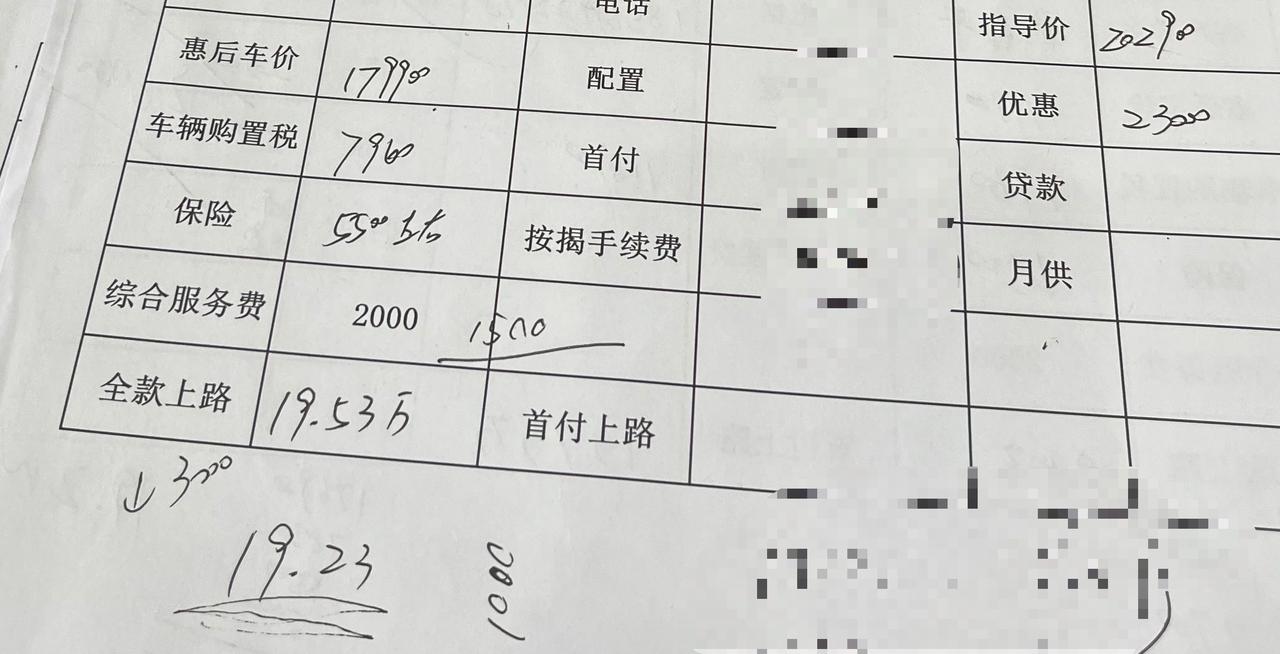 电话
惠后车价 179900 配置 指导价 202900
车辆购置税 7960 首付 优惠 23000
保险 5500左右 按揭手续费 贷款
综合服务费 2000 1500 月供
全款上路 19.53万 首付上路
↓3000
19.23
1000